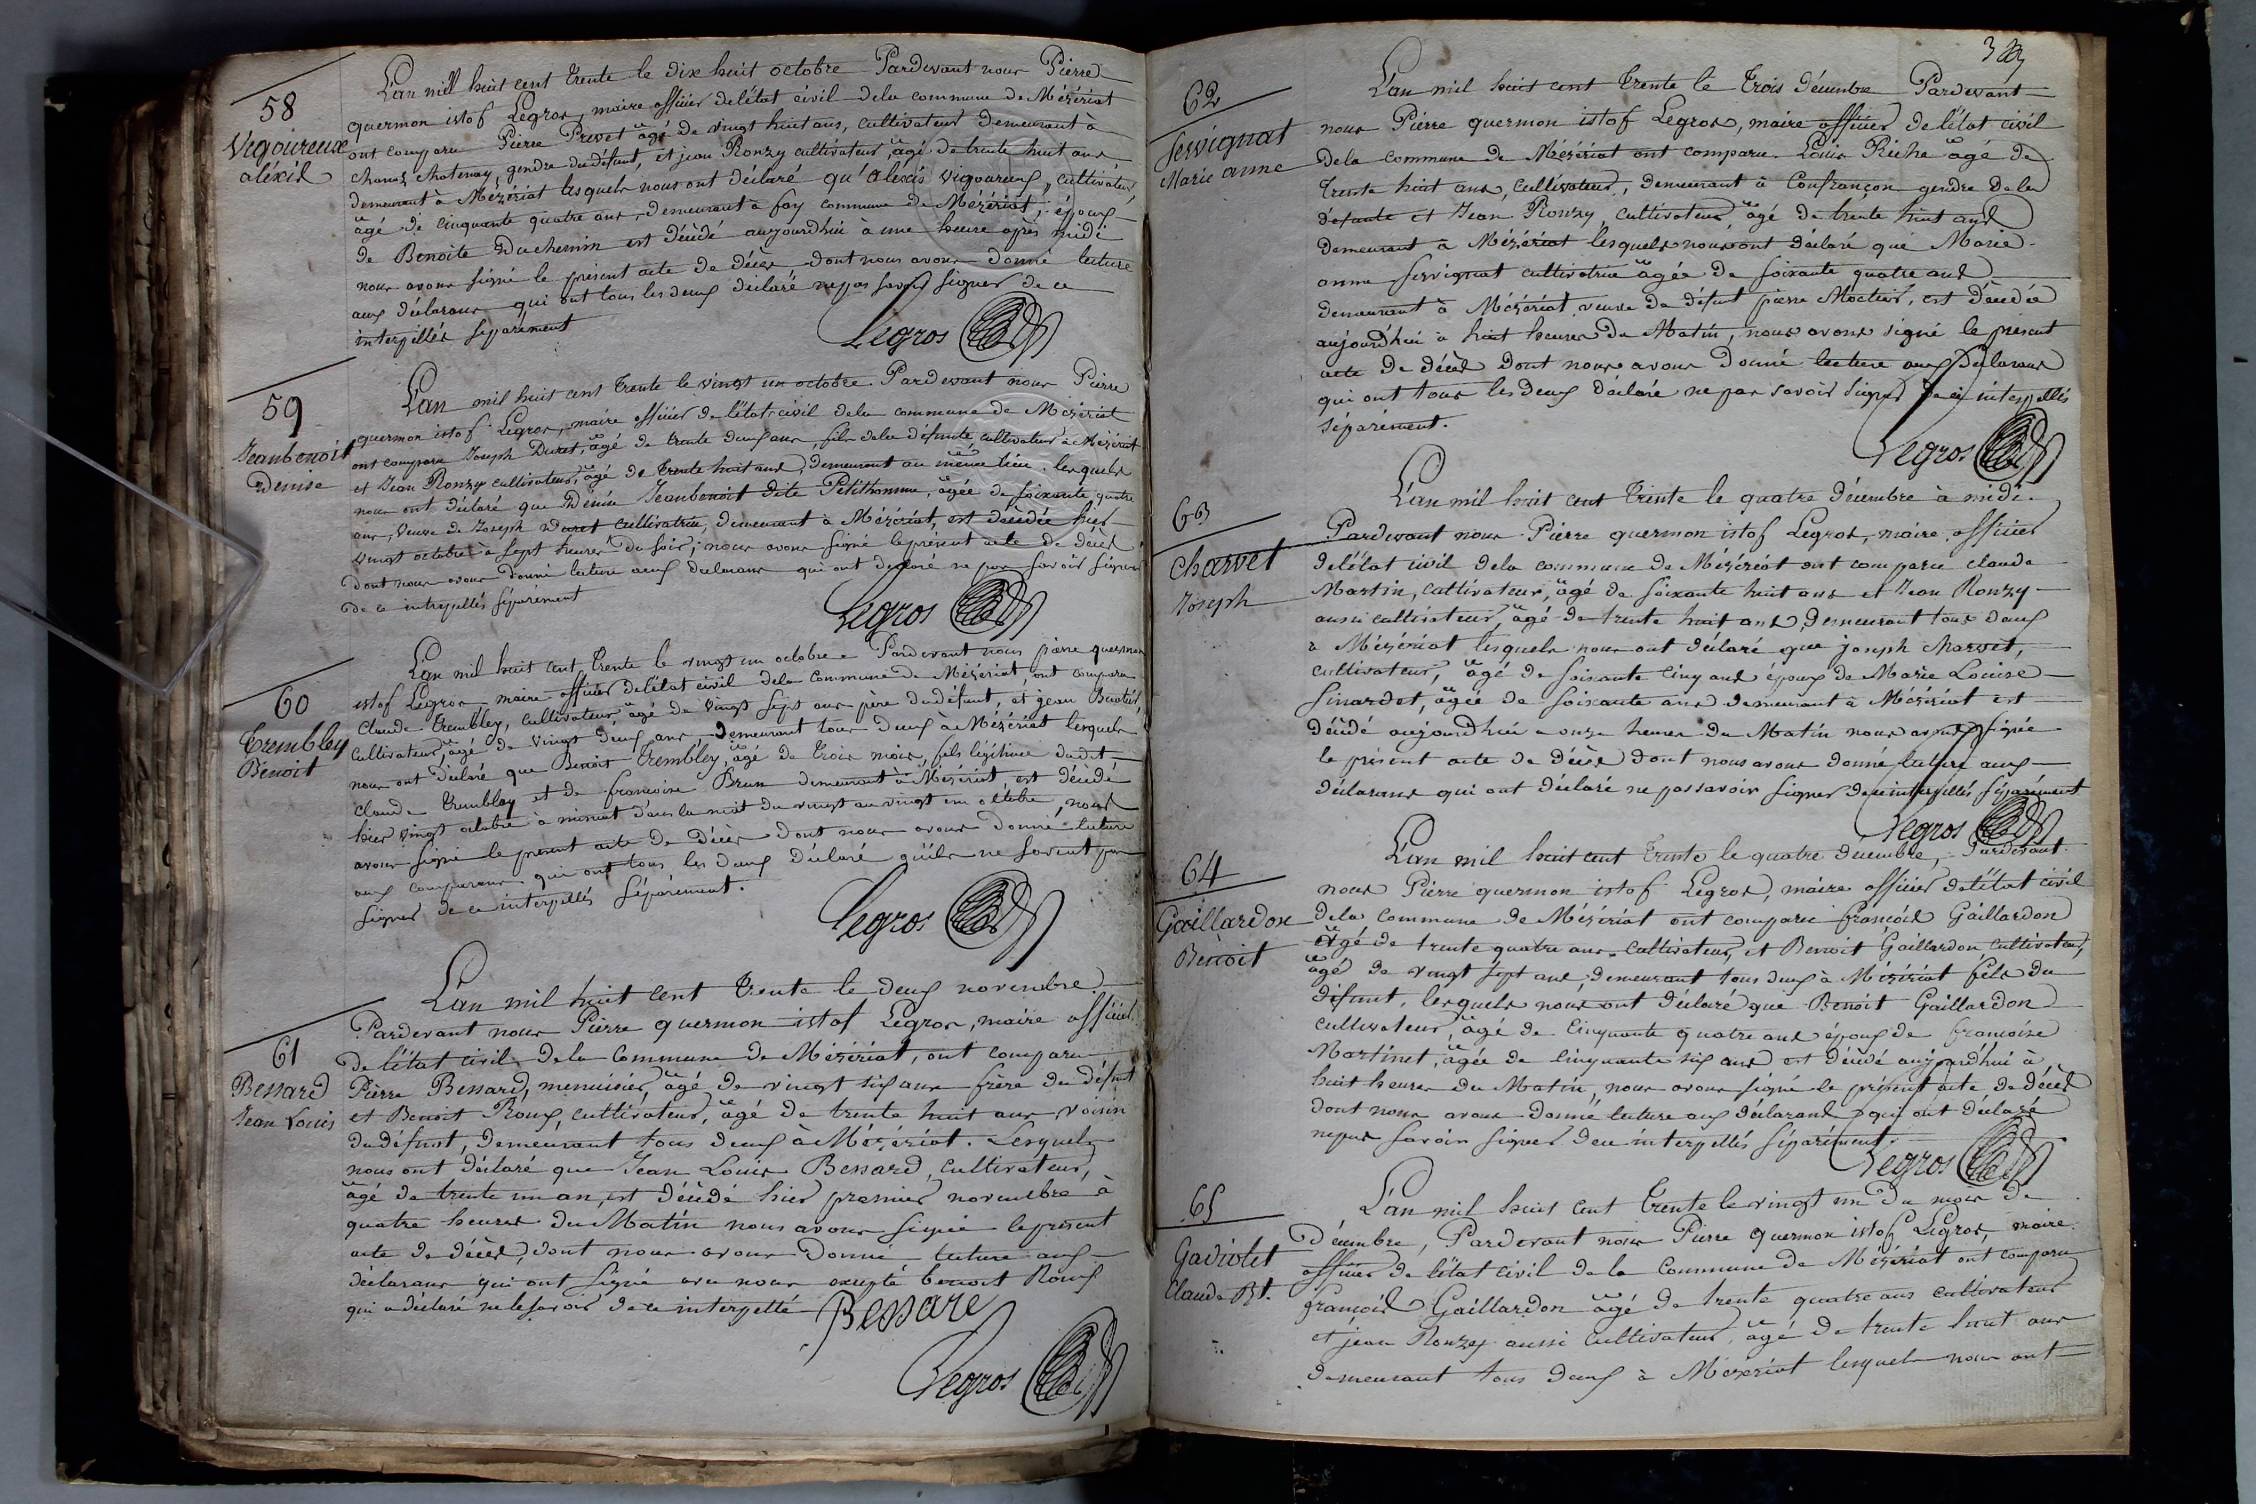 58
Vigoureux
aléxis
L'an mil huit cent trente le dix huit octobre Pardevant nous Pierre
quermon istof Legros, maire officier de l'état civil dela commune de Mézériat
ont comparu Pierre Prevet âgé de vingt huit ans, cultivateur demeurant à
Chanoz chatenay, gendre du défunt, et jean Ronzy cultivateur, âgé de trente huit ans
demeurant à Mézériat lesquels nous ont déclaré qu'aléxis vigoureux, cultivateur,
âgé de cinquante quatre ans, demeurant à fay commune de Mézériat, époux
de Benoite Duchemin est décédé aujourdhui à une heure après midi
nous avons signé le présent acte de décès dont nous avons donné lecture
aux déclarans qui ont tous les deux déclaré ne pas savoir signer de ce
interpellés séparément
Legros
59
Jeanbenoit
Denise
L'an mil huit cent trente le vingt un octobre Pardevant nous Pierre
quermon istof Legros, maire officier de l'état civil dela commune de Mézériat
ont comparu Joseph Duret, âgé de trente deux ans, fils dela défunte, cultivateur à Mézériat
et Jean Ronzy cultivateur, âgé de trente huit ans, demeurant au même lieu. lesquels
nous ont déclaré que Dénise Jeanbenoit dite Petithomme, âgée de soixante quatre
ans, veuve de Joseph Duret cultivatrice, demeurant à Mézériat, est décédée hier
vingt octobre à sept heures du soir; nous avons signé le présent acte de décès
dont nous avons donné lecture aux déclarans qui ont déclaré ne pas savoir signer
de ce interpellés séparément
Legros
60
Trembley
Bénoit
L'an mil huit cent trente le vingt un octobre Pardevant nous pierre quermon
istof Legros, maire officier de l'état civil dela commune de Mézériat, ont comparu
Claude Trembley, cultivateur âgé de vingt sept ans père du défunt, et jean
cultivateur, âgé de vingt deux ans, demeurant tous deux à Mézériat lesquels
nous ont déclaré que Benoit Trembley, âgé de trois mois, fils légitime dudit
Claude Trembley et de francoise Brun demeurant à Mézériat est décédé
hier vingt octobre à minuit dans la nuit du vingt au vingt un octobre, nous
avons signé le présent acte de décès dont nous avons donné lecture
aux comparans qui ont tous les deux déclaré qu'ils ne savent pas
signer de ce interpellés séparément.
Legros
61
Bessard
Jean Louis
L'an mil huit cent trente le deux novembre
Pardevant nous Pierre quermon istof Legros, maire officier
de l'état civil de la commune de Mézériat, ont comparu
Pierre Bessard, menuisier, âgé de vingt six ans frère du défunt
et Benoit Roux, cultivateur, âgé de trente huit ans voisin
du défunt, demeurant tous deux à Mézériat. Lesquels
nous ont déclaré que Jean Louis Bessard, cultivateur,
âgé de trente un an, est décédé hier premier novembre à
quatre heures du Matin nous avons signé le présent
acte de décès, dont nous avons donné lecture aux
déclarans qui ont signé avec nous excepté benoit Roux
qui a déclaré ne le savoir de ce interpellé
Bessard
Legros
62
Servignat
Marie anne
L'an mil huit cent trente le trois décembre Pardevant
nous Pierre quermon istof Legros, maire officier de l'état civil
dela commune de Mézériat ont comparu Louis Riche âgé de
trente huit ans, cultivateur, demeurant à Confrançon gendre de la
défunte et Jean Ronzy, cultivateur âgé de trente huit ans
demeurant à Mézériat lesquels nous ont déclaré que Marie
anne servignat cultivatrice âgée de soixante quatre ans
demeurant à Mézériat, veuve de défunt pierre Mactier, est décédée
aujourd'hui à huit heures du Matin, nous avons signé le présent
acte de décès dont nous avons donné lecture aux déclarans
qui ont tous les deux déclaré ne pas savoir signer de ce interpellés
séparément.
Legros
63
Charvet
Joseph
L'an mil huit cent trente le quatre décembre à midi.
Pardevant nous Pierre quermon istof Legros, maire, officier
de l'état civil dela commune de Mézériat ont comparu claude
Martin, cultivateur, âgé de soixante huit ans et Jean Ronzy
aussi cultivateur, âgé de trente huit ans, demeurant tous deux
à Mézériat lesquels nous ont déclaré que joseph charvet,
cultivateur, âgé de soixante cinq ans époux de Marie Louise
Sinardet, âgée de soixante ans demeurant à Mézériat est
décédé aujourdhui à onze heures du Matin nous avons signé
le présent acte de décès dont nous avons donné lecture aux
déclarans qui ont déclaré ne pas savoir signer de ce interpellés séparément
Legros
64
Gaillardon
Bénoit
L'an mil huit cent trente le quatre decembre, Pardevant
nous Pierre quermon istof Legros, maire officier de l'état civil
dela commune de Mézériat ont comparu françois Gaillardon
âgé de trente quatre ans cultivateur, et Benoit Gaillardon, cultivateur,
âgé de vingt sept ans, demeurant tous deux à Mézériat fils du
défunt, lesquels nous ont déclaré que Benoit Gaillardon
cultivateur, âgé de cinquante quatre ans époux de francoise
Martinet, âgée de cinquante six ans est décédé aujourd'hui à
huit heures du Matin, nous avons signé le présent acte de décès
dont nous avons donné lecture aux déclarans qui ont déclaré
ne pas savoir signer de ce interpellés séparément.
Legros
65
Gadiolet
Claude Bt.
L'an mil huit cent trente le vingt un du mois de
décembre, Pardevant nous Pierre quermon istof Legros, maire
officier de l'état civil de la commune de Mézériat ont comparu
françois Gaillardon âgé de trente quatre ans cultivateur
et jean Ronzy aussi cultivateur, âgé de trente huit ans
demeurant tous deux à Mézériat lesquels nous ont